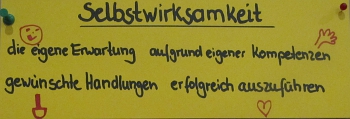 Selbstwirksamkeit
die eigene Erwartung aufgrund eigener Kompetenzen
gewünschte Handlungen erfolgreich auszuführen